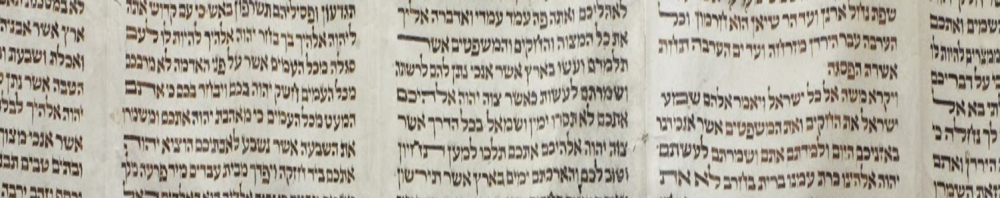 שמים ואתכם
מצרים להיות לו
על דבריכם
בא אל
נחלה כי
הירדן ואתם
השמרו
שפת נחל ארנן ועד הר שיאן הוא חרמון וכל
הערבה עבר הירדן מזרחה ועד ים הערבה תחת
אשדת הפסגה
ויקרא משה אל כל ישראל ויאמר אלהם שמע
ישראל את החקים ואת המשפטים אשר אנכי
באזניכם היום ולמדתם אתם ושמרתם לעשתם
יהוה אלהינו כרת עמנו ברית בחרב לא את
לאהליכם ואתה פה עמד עמדי ואדברה אליך
את כל המצוה והחקים והמשפטים אשר
תלמדם ועשו בארץ אשר אנכי נתן להם לרשתה
ושמרתם לעשות כאשר צוה יהוה אלהיכם
אתכם לא תסרו ימין ושמאל בכל הדרך אשר
צוה יהוה אלהיכם אתכם תלכו למען תחיון
וטוב לכם והארכתם ימים בארץ אשר תירשון
תגדעון ופסיליהם תשרפון באש כי עם קדוש אתה
ליהוה אלהיך בך בחר יהוה אלהיך להיות לו לעם
סגלה מכל העמים אשר על פני האדמה לא מרבכם
מכל העמים חשק יהוה בכם ויבחר בכם כי אתם
המעט מכל העמים כי מאהבת יהוה אתכם ומשמרו
את השבעה אשר נשבע לאבתיכם הוציא יהוה
אתכם ביד חזקה ויפדך מבית עבדים מיד פרעה מלך
לא במסכנת
ארץ אשר אבניה
ואכלת ושבעת
הטבה אשר נתן
יהוה אלהיך לבלתי
אשר אנכי מצוך
ובתים טבים תבנה